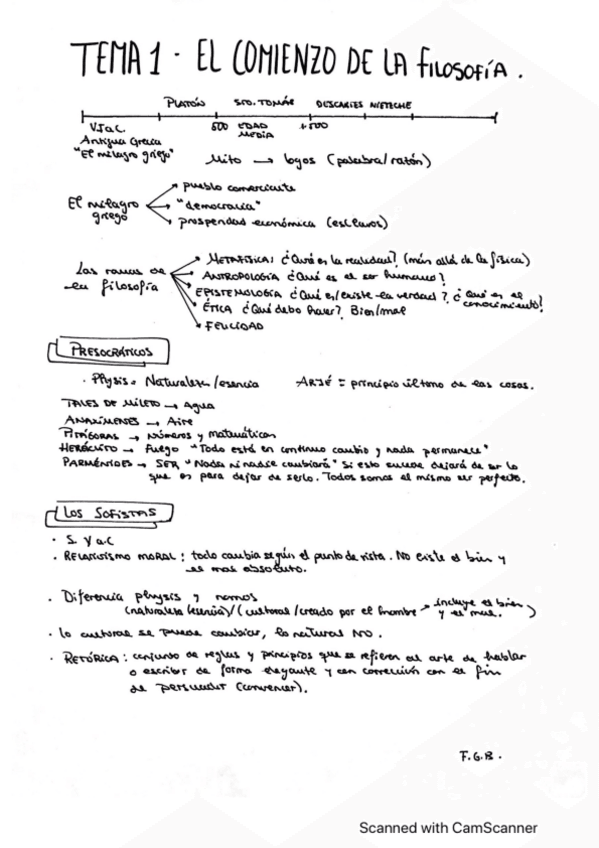 TEMA 1 · EL COMIENZO DE LA FILOSOFÍA.
PLATÓN STO. TOMÁS DESCARTES NIETZCHE
V.I a.C. 500 EDAD MEDIA 1500
Antigua Grecia
"El milagro griego" Mito → logos (palabra/razón)
El milagro griego
→ pueblo comerciante
→ "democracia"
→ prosperidad económica (esclavos)
Las ramas de la filosofía
→ METAFÍSICA: ¿Qué es la realidad? (más allá de la física)
→ ANTROPOLOGÍA ¿Qué es el ser humano?
→ EPISTEMOLOGÍA ¿Qué es/existe la verdad? ¿Qué es el conocimiento?
→ ÉTICA ¿Qué debo hacer? Bien/mal
→ FELICIDAD
PRESOCRÁTICOS
· Physis = Naturaleza/esencia ARJÉ = principio último de las cosas.
TALES DE MILETO → Agua
ANAXÍMENES → Aire
PITÁGORAS → Números y matemáticas
HERÁCLITO → Fuego "Todo está en continuo cambio y nada permanece"
PARMÉNIDES → SER "Nada ni nadie cambiará" Si esto sucede dejará de ser lo
que es para dejar de serlo. Todos somos el mismo ser perfecto.
LOS SOFISTAS
· S. V a.C
· RELATIVISMO MORAL: todo cambia según el punto de vista. No existe el bien y
absoluto.
· Diferencia physis y nomos
(naturaleza/esencia)/(cultural/creado por el hombre → incluye el bien y el mal.)
· lo cultural se puede cambiar, lo natural NO.
· RETÓRICA: conjunto de reglas y principios que se refieren al arte de hablar
o escribir de forma elegante y con corrección con el fin
de persuadir (convencer).
F.G.B.
Scanned with CamScanner